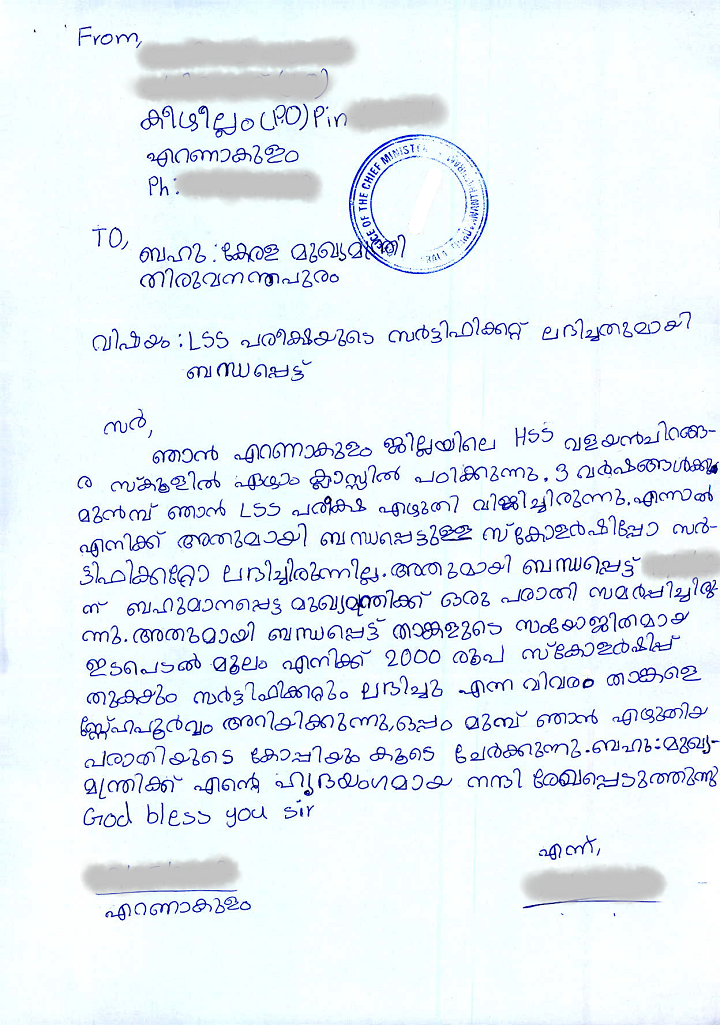 From,
കീഴില്ലം (PO) Pin
എറണാകുളം
Ph:
OFFICE OF THE CHIEF MINISTER
TO,
ബഹു : കേരള മുഖ്യമന്ത്രി
തിരുവനന്തപുരം
വിഷയം : LSS പരീക്ഷയുടെ സർട്ടിഫിക്കറ്റ് ലഭിച്ചതുമായി
ബന്ധപ്പെട്ട്
സർ,
ഞാൻ എറണാകുളം ജില്ലയിലെ HSS വളയൻചിറങ്ങ-
ര സ്കൂളിൽ ഏഴാം ക്ലാസ്സിൽ പഠിക്കുന്നു. 3 വർഷങ്ങൾക്കു
മുൻമ്പ് ഞാൻ LSS പരീക്ഷ എഴുതി വിജയിച്ചിരുന്നു. എന്നാൽ
എനിക്ക് അതുമായി ബന്ധപ്പെട്ടുള്ള സ്കോളർഷിപ്പോ സർ-
ട്ടിഫിക്കറ്റോ ലഭിച്ചിരുന്നില്ല. അതുമായി ബന്ധപ്പെട്ട്
ന് ബഹുമാനപ്പെട്ട മുഖ്യമന്ത്രിക്ക് ഒരു പരാതി സമർപ്പിച്ചിരു
ന്നു. അതുമായി ബന്ധപ്പെട്ട് താങ്കളുടെ സംയോജിതമായ
ഇടപെടൽ മൂലം എനിക്ക് 2000 രൂപ സ്കോളർഷിപ്പ്
തുകയും സർട്ടിഫിക്കറ്റും ലഭിച്ചു എന്ന വിവരം താങ്കളെ
സ്നേഹപൂർവം അറിയിക്കുന്നു, ഒപ്പം മുമ്പ് ഞാൻ എഴുതിയ
പരാതിയുടെ കോപ്പിയും കൂടെ ചേർക്കുന്നു. ബഹു: മുഖ്യ-
മന്ത്രിക്ക് എന്റെ ഹൃദയംഗമായ നന്ദി രേഖപ്പെടുത്തുന്നു
God bless you sir
എന്ന്,
എറണാകുളം